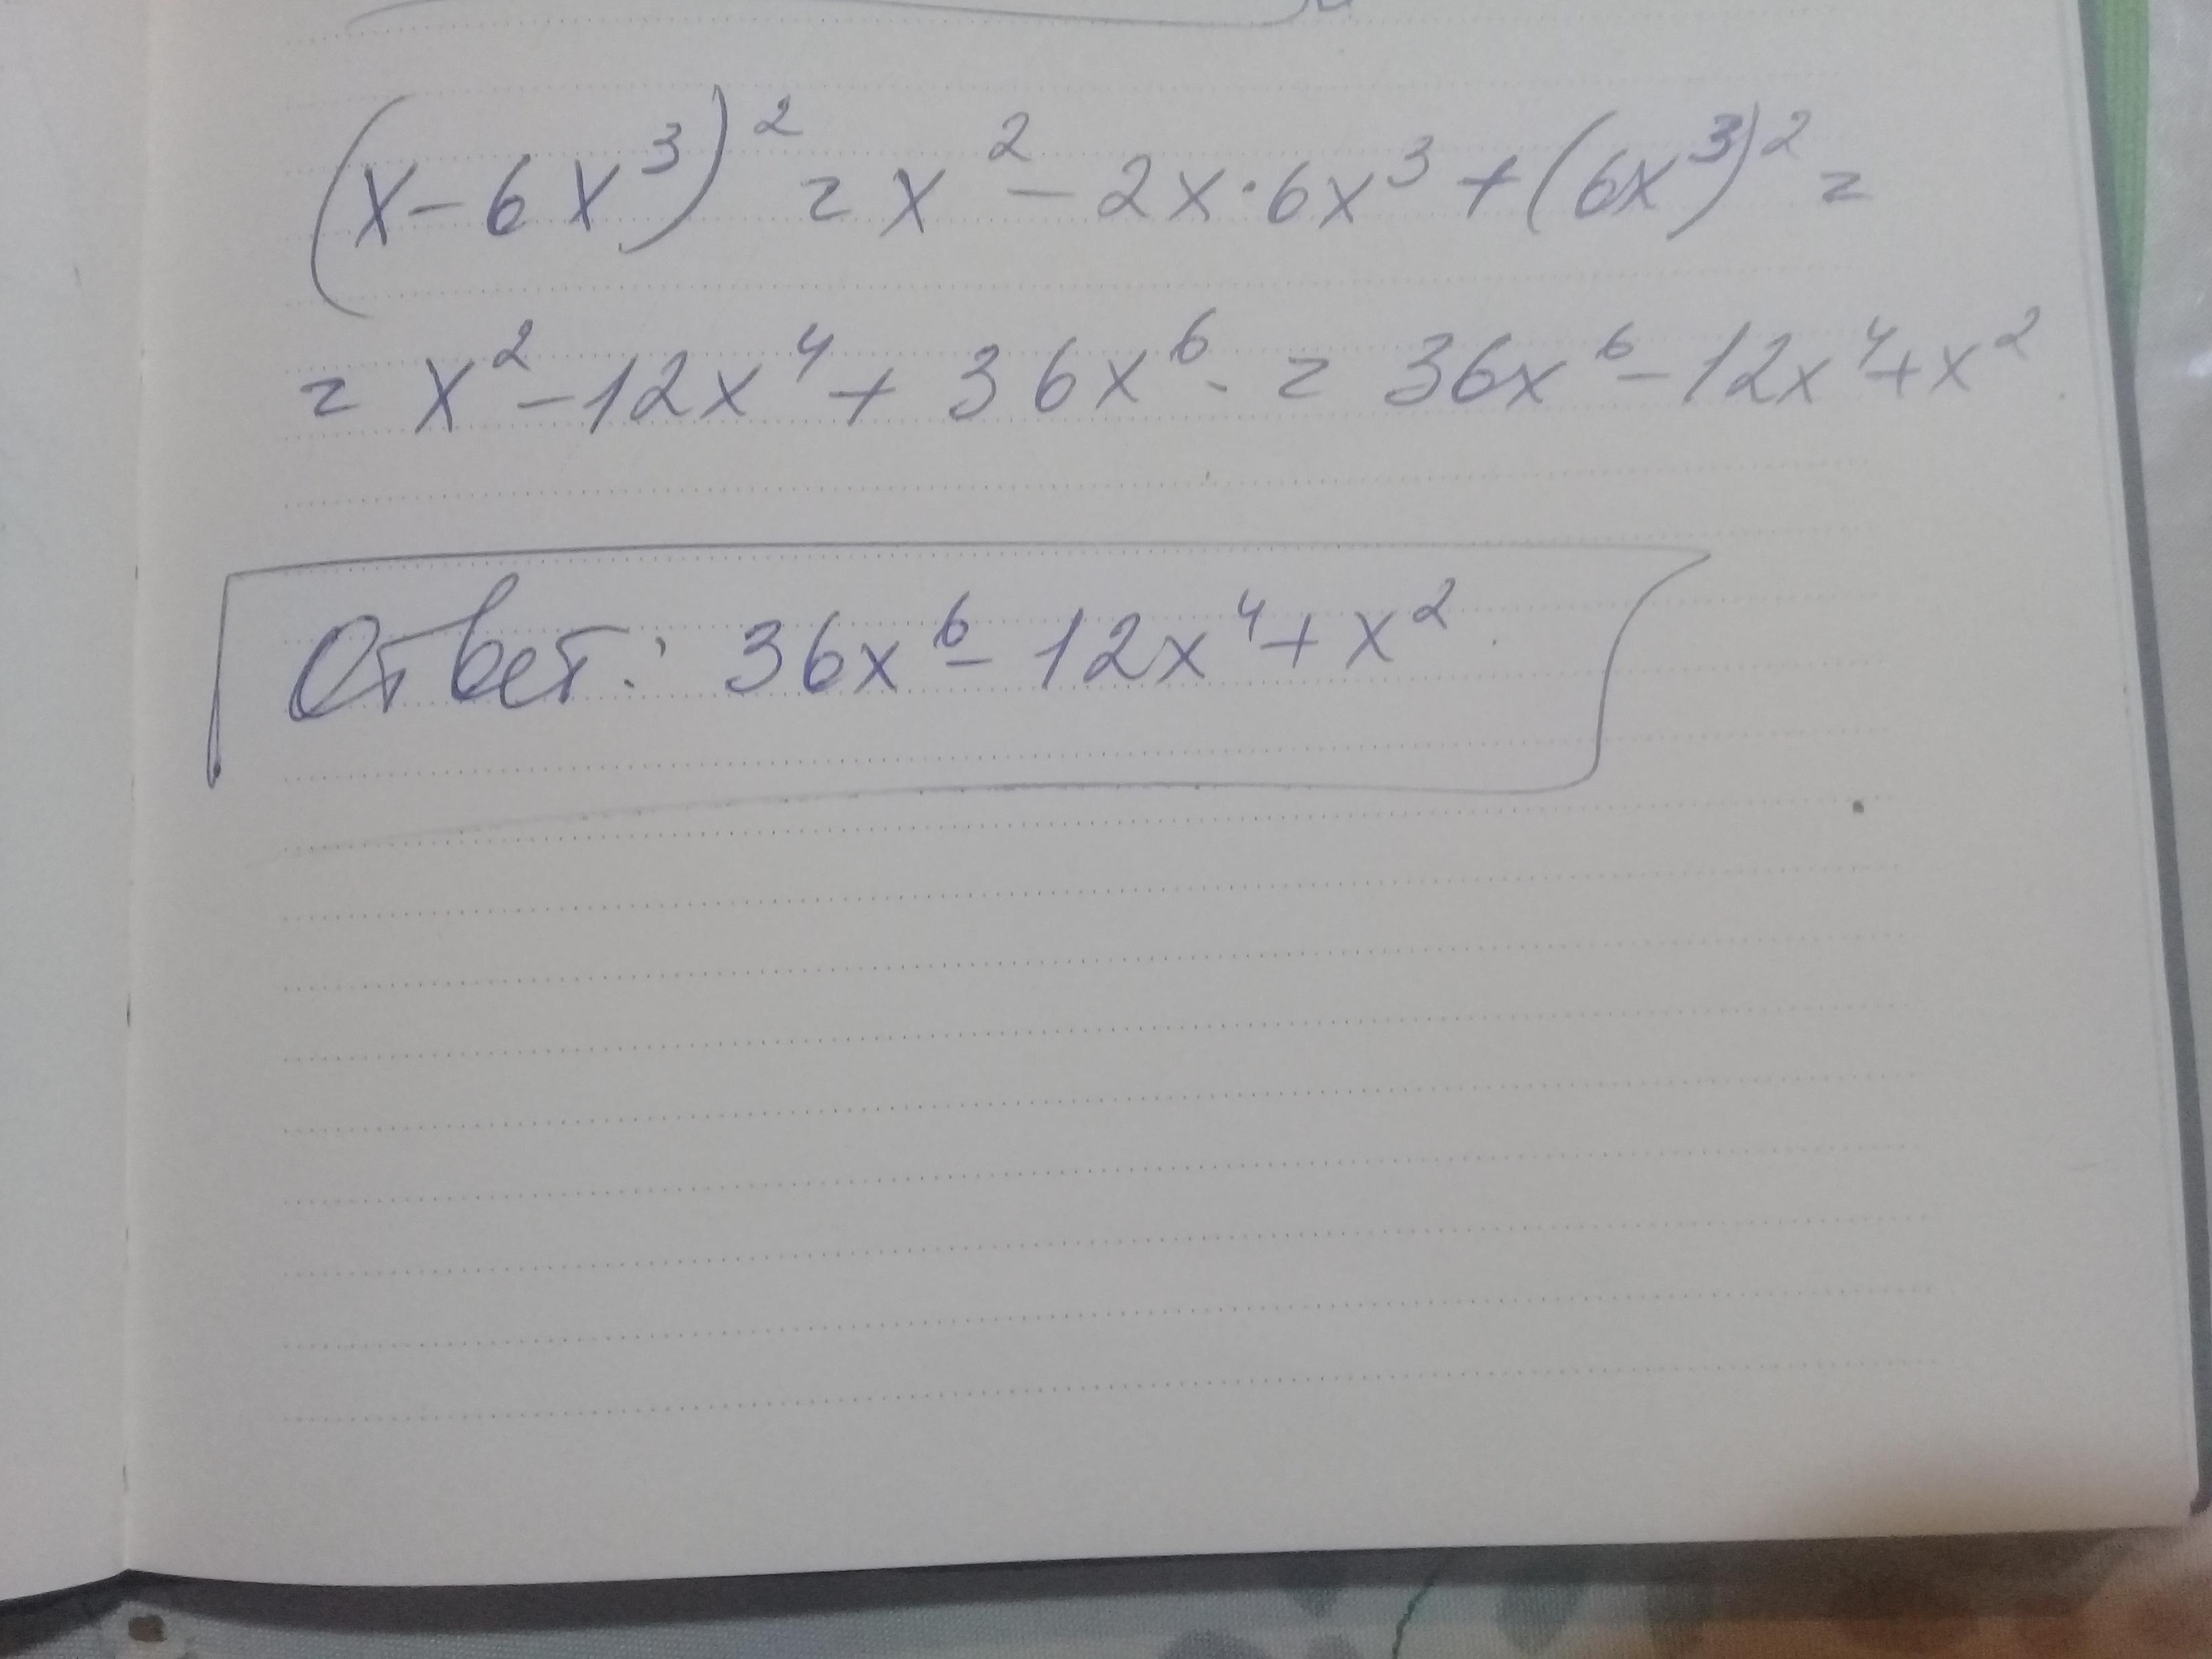 (x-6x³)² = x² - 2x·6x³ + (6x³)² =
= x² - 12x⁴ + 36x⁶ = 36x⁶ - 12x⁴ + x²
Ответ: 36x⁶ - 12x⁴ + x².